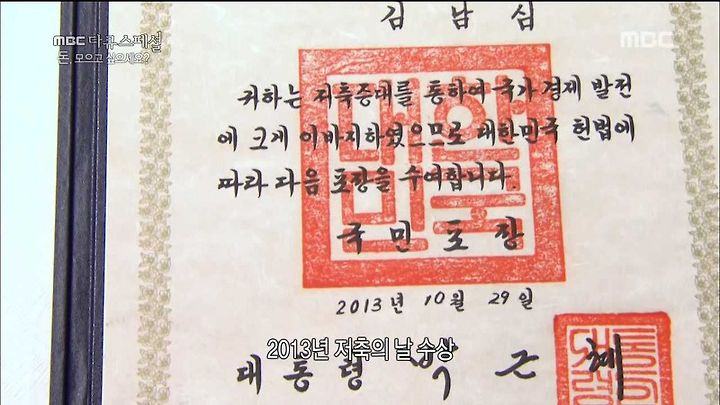 MBC 다큐스페셜
돈, 모으고 싶으세요?
MBC
김남심
귀하는 저축증대를 통하여 국가 경제 발전
에 크게 이바지하였으므로 대한민국 헌법에
따라 다음 포장을 수여합니다.
국민포장
2013년 10월 29일
2013년 저축의 날 수상
대통령 박근혜